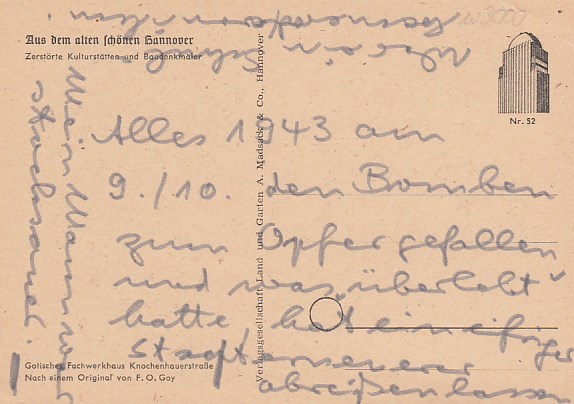 Aus dem alten schönen Hannover
Zerstörte Kulturstätten und Baudenkmäler
Nr. 52
Verlagsgesellschaft Land und Garten A. Madsack & Co., Hannover
Alles 1943 am
9./10. den Bomben
zum Opfer gefallen
und was „überlebt“
hatte, hat ein eifriger
Stadterneuerer
abreißen lassen
Mein Mann war
stocksauer!
Gotisches Fachwerkhaus Knochenhauerstraße
Nach einem Original von F. O. Goy